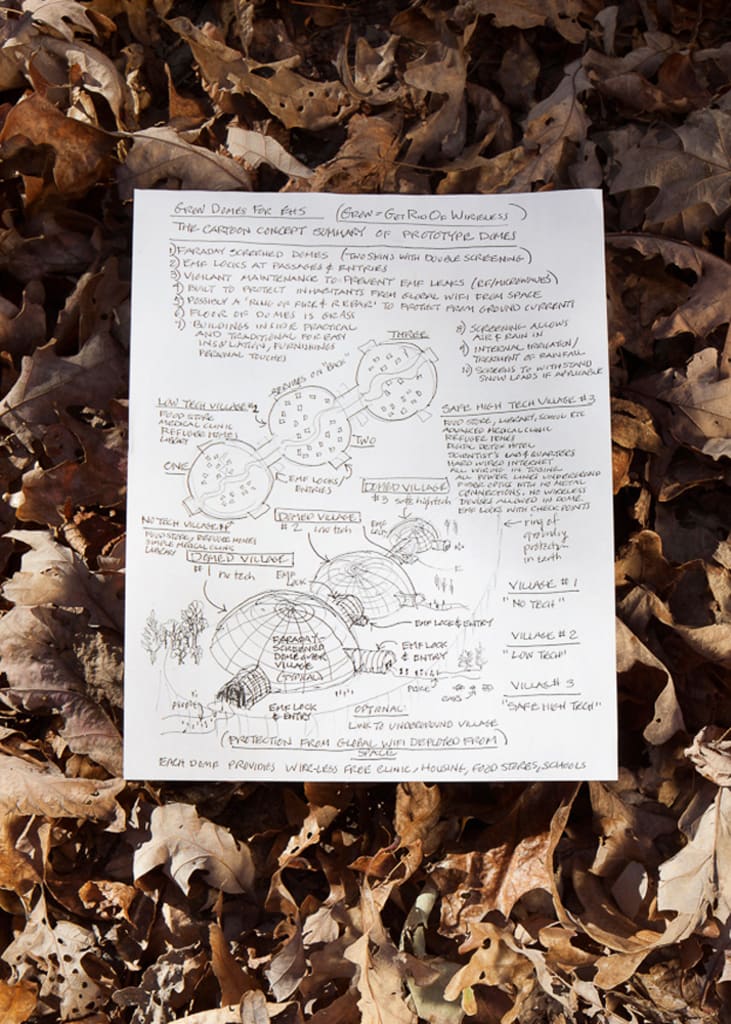 GROW DOMES FOR EHS (GROW = GET RID OF WIRELESS)
THE CARTOON CONCEPT SUMMARY OF PROTOTYPE DOMES
1) FARADAY SCREENED DOMES (TWO SKINS WITH DOUBLE SCREENING)
2) EMF LOCKS AT PASSAGES & ENTRIES
3) VIGILANT MAINTENANCE TO PREVENT EMF LEAKS (RF/MICROWAVES)
4) BUILT TO PROTECT INHABITANTS FROM GLOBAL WIFI FROM SPACE
5) POSSIBLY A 'RING OF FIRE & REBAR' TO PROTECT FROM GROUND CURRENTS
6) FLOOR OF DOMES IS GRASS
7) BUILDINGS INSIDE PRACTICAL
AND TRADITIONAL FOR EASY
INSULATION, FURNISHINGS
PERSONAL TOUCHES
8) SCREENING ALLOWS
AIR & RAIN IN
9) INTERNAL IRRIGATION/
TREATMENT OF RAINFALL
10) SCREENS TO WITHSTAND
SNOW LOADS IF APPLICABLE
THREE
SERVICES ON "BACK"
LOW TECH VILLAGE #2
FOOD STORE
MEDICAL CLINIC
REFUGEE HOMES
LIBRARY
TWO
ONE
EMF LOCKS/
ENTRIES
SAFE HIGH TECH VILLAGE #3
FOOD STORE, LIBRARY, SCHOOL ETC
ADVANCED MEDICAL CLINIC
REFUGEE HOMES
DIGITAL DETOX HOTEL
SCIENTIST'S LAB & QUARTERS
HARD WIRED INTERNET
ALL WIRING IN TUBING
ALL POWER LINES UNDERGROUND
FIBER OPTICS WITH NO METAL
CONNECTIONS, NO WIRELESS
DEVISES ALLOWED IN DOME
EMF LOCKS WITH CHECK POINTS
DOMED VILLAGE
#3 safe high tech
NO TECH VILLAGE #1
FOOD STORE, REFUGEE HOMES
SIMPLE MEDICAL CLINIC
LIBRARY
DOMED VILLAGE
#2 low tech
EMF
LOCK
ring of
grounding
protection
in earth
DOMED VILLAGE
#1 no tech
EMF
LOCK
VILLAGE #1
"NO TECH"
EMF LOCK & ENTRY
FARADAY
SCREENED
DOME OVER
VILLAGE
(TYPICAL)
EMF LOCK
& ENTRY
VILLAGE #2
"LOW TECH"
VILLAGE #3
"SAFE HIGH TECH"
people
CARS
people
EMF LOCK
& ENTRY
OPTIONAL:
LINK TO UNDERGROUND VILLAGE
(PROTECTION FROM GLOBAL WIFI DEPLOYED FROM
SPACE)
EACH DOME PROVIDES WIRE-LESS FREE CLINIC, HOUSING, FOOD STORES, SCHOOLS